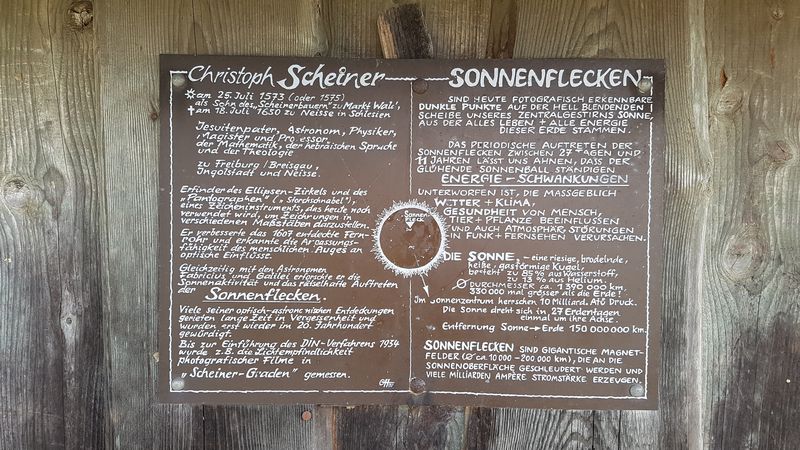 Christoph Scheiner
✳ am 25. Juli 1573 (oder 1575)
als Sohn des „Scheinerbauern" zu Markt Wald,
✝ am 18. Juli 1650 zu Neisse in Schlesien
Jesuitenpater, Astronom, Physiker,
Magister und Professor
der Mathematik, der hebräischen Sprache
und der Theologie
zu Freiburg/Breisgau,
Ingolstadt und Neisse.
Erfinder des Ellipsen-Zirkels und des
„Pantographen" („Storchschnabel"),
eines Zeicheninstruments, das heute noch
verwendet wird, um Zeichnungen in
verschiedenen Maßstäben darzustellen.
Er verbesserte das 1607 entdeckte Fern-
rohr und erkannte die Anpassungs-
fähigkeit des menschlichen Auges an
optische Einflüsse.
Gleichzeitig mit den Astronomen
Fabricius und Galilei erforschte er die
Sonnenaktivität und das rätselhafte Auftreten
der Sonnenflecken.
Viele seiner optisch-astronomischen Entdeckungen
gerieten lange Zeit in Vergessenheit und
wurden erst wieder im 20. Jahrhundert
gewürdigt.
Bis zur Einführung des DIN-Verfahrens 1934
wurde z.B. die Lichtempfindlichkeit
photografischer Filme in
„Scheiner-Graden" gemessen.
SONNENFLECKEN
SIND HEUTE FOTOGRAFISCH ERKENNBARE
DUNKLE PUNKTE AUF DER HELL BLENDENDEN
SCHEIBE UNSERES ZENTRALGESTIRNS SONNE,
AUS DER ALLES LEBEN + ALLE ENERGIE
DIESER ERDE STAMMEN.
DAS PERIODISCHE AUFTRETEN DER
SONNENFLECKEN ZWISCHEN 27 TAGEN UND
11 JAHREN LÄSST UNS AHNEN, DASS DER
GLÜHENDE SONNENBALL STÄNDIGEN
ENERGIE-SCHWANKUNGEN
UNTERWORFEN IST, DIE MASSGEBLICH
WETTER + KLIMA,
GESUNDHEIT VON MENSCH,
TIER + PFLANZE BEEINFLUSSEN
UND AUCH ATMOSPHÄR. STÖRUNGEN
IN FUNK + FERNSEHEN VERURSACHEN.
Sonnen-
fleck
DIE SONNE, - eine riesige, brodelnde,
heiße, gasförmige Kugel,
besteht zu 85% aus Wasserstoff,
zu 13% aus Helium.
Ø DURCHMESSER ca. 1 390 000 km.
330 000 mal grösser als die Erde!
Im Sonnenzentrum herrschen 10 Milliard. Atü Druck.
Die Sonne dreht sich in 27 Erdentagen
einmal um ihre Achse.
Entfernung Sonne → Erde 150 000 000 km.
SONNENFLECKEN SIND GIGANTISCHE MAGNET-
FELDER (Ø ca. 10 000 - 200 000 km), DIE AN DIE
SONNENOBERFLÄCHE GESCHLEUDERT WERDEN UND
VIELE MILLIARDEN AMPÈRE STROMSTÄRKE ERZEUGEN.